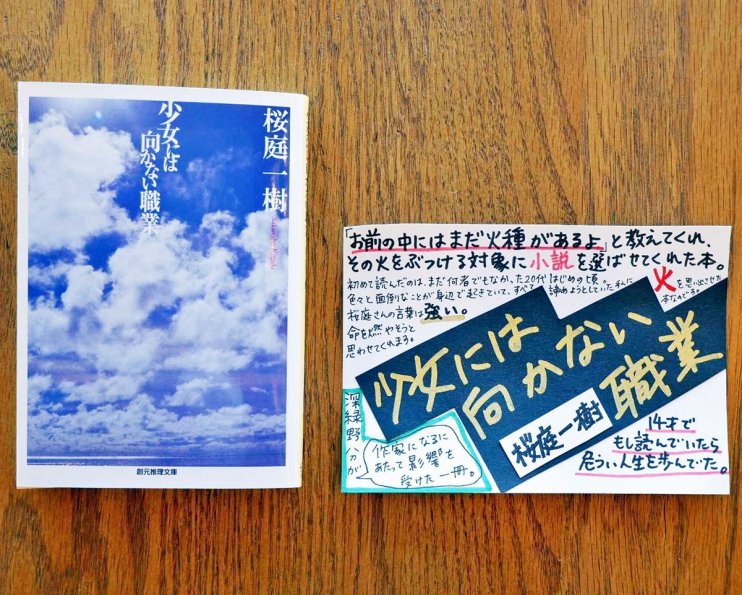 桜庭一樹
少女には
向かない職業
Sakuraba Kazuki
創元推理文庫
「お前の中にはまだ火種があるよ」と教えてくれ、
その火をぶつける対象に小説を選ばせてくれた本。
初めて読んだのは、まだ何者でもなかった20代はじめの頃。
色々と面倒なことが身辺で起きていて、すべて諦めようとしていた私に
火を思い出させた
本なのである。
桜庭さんの言葉は強い。
命を燃やそうと
思わせてくれます。
少女には
向かない
職業
桜庭一樹
深緑野分が
作家になるに
あたって影響を
受けた一冊。
14才で
もし読んでいたら
危うい人生を歩んでいた。